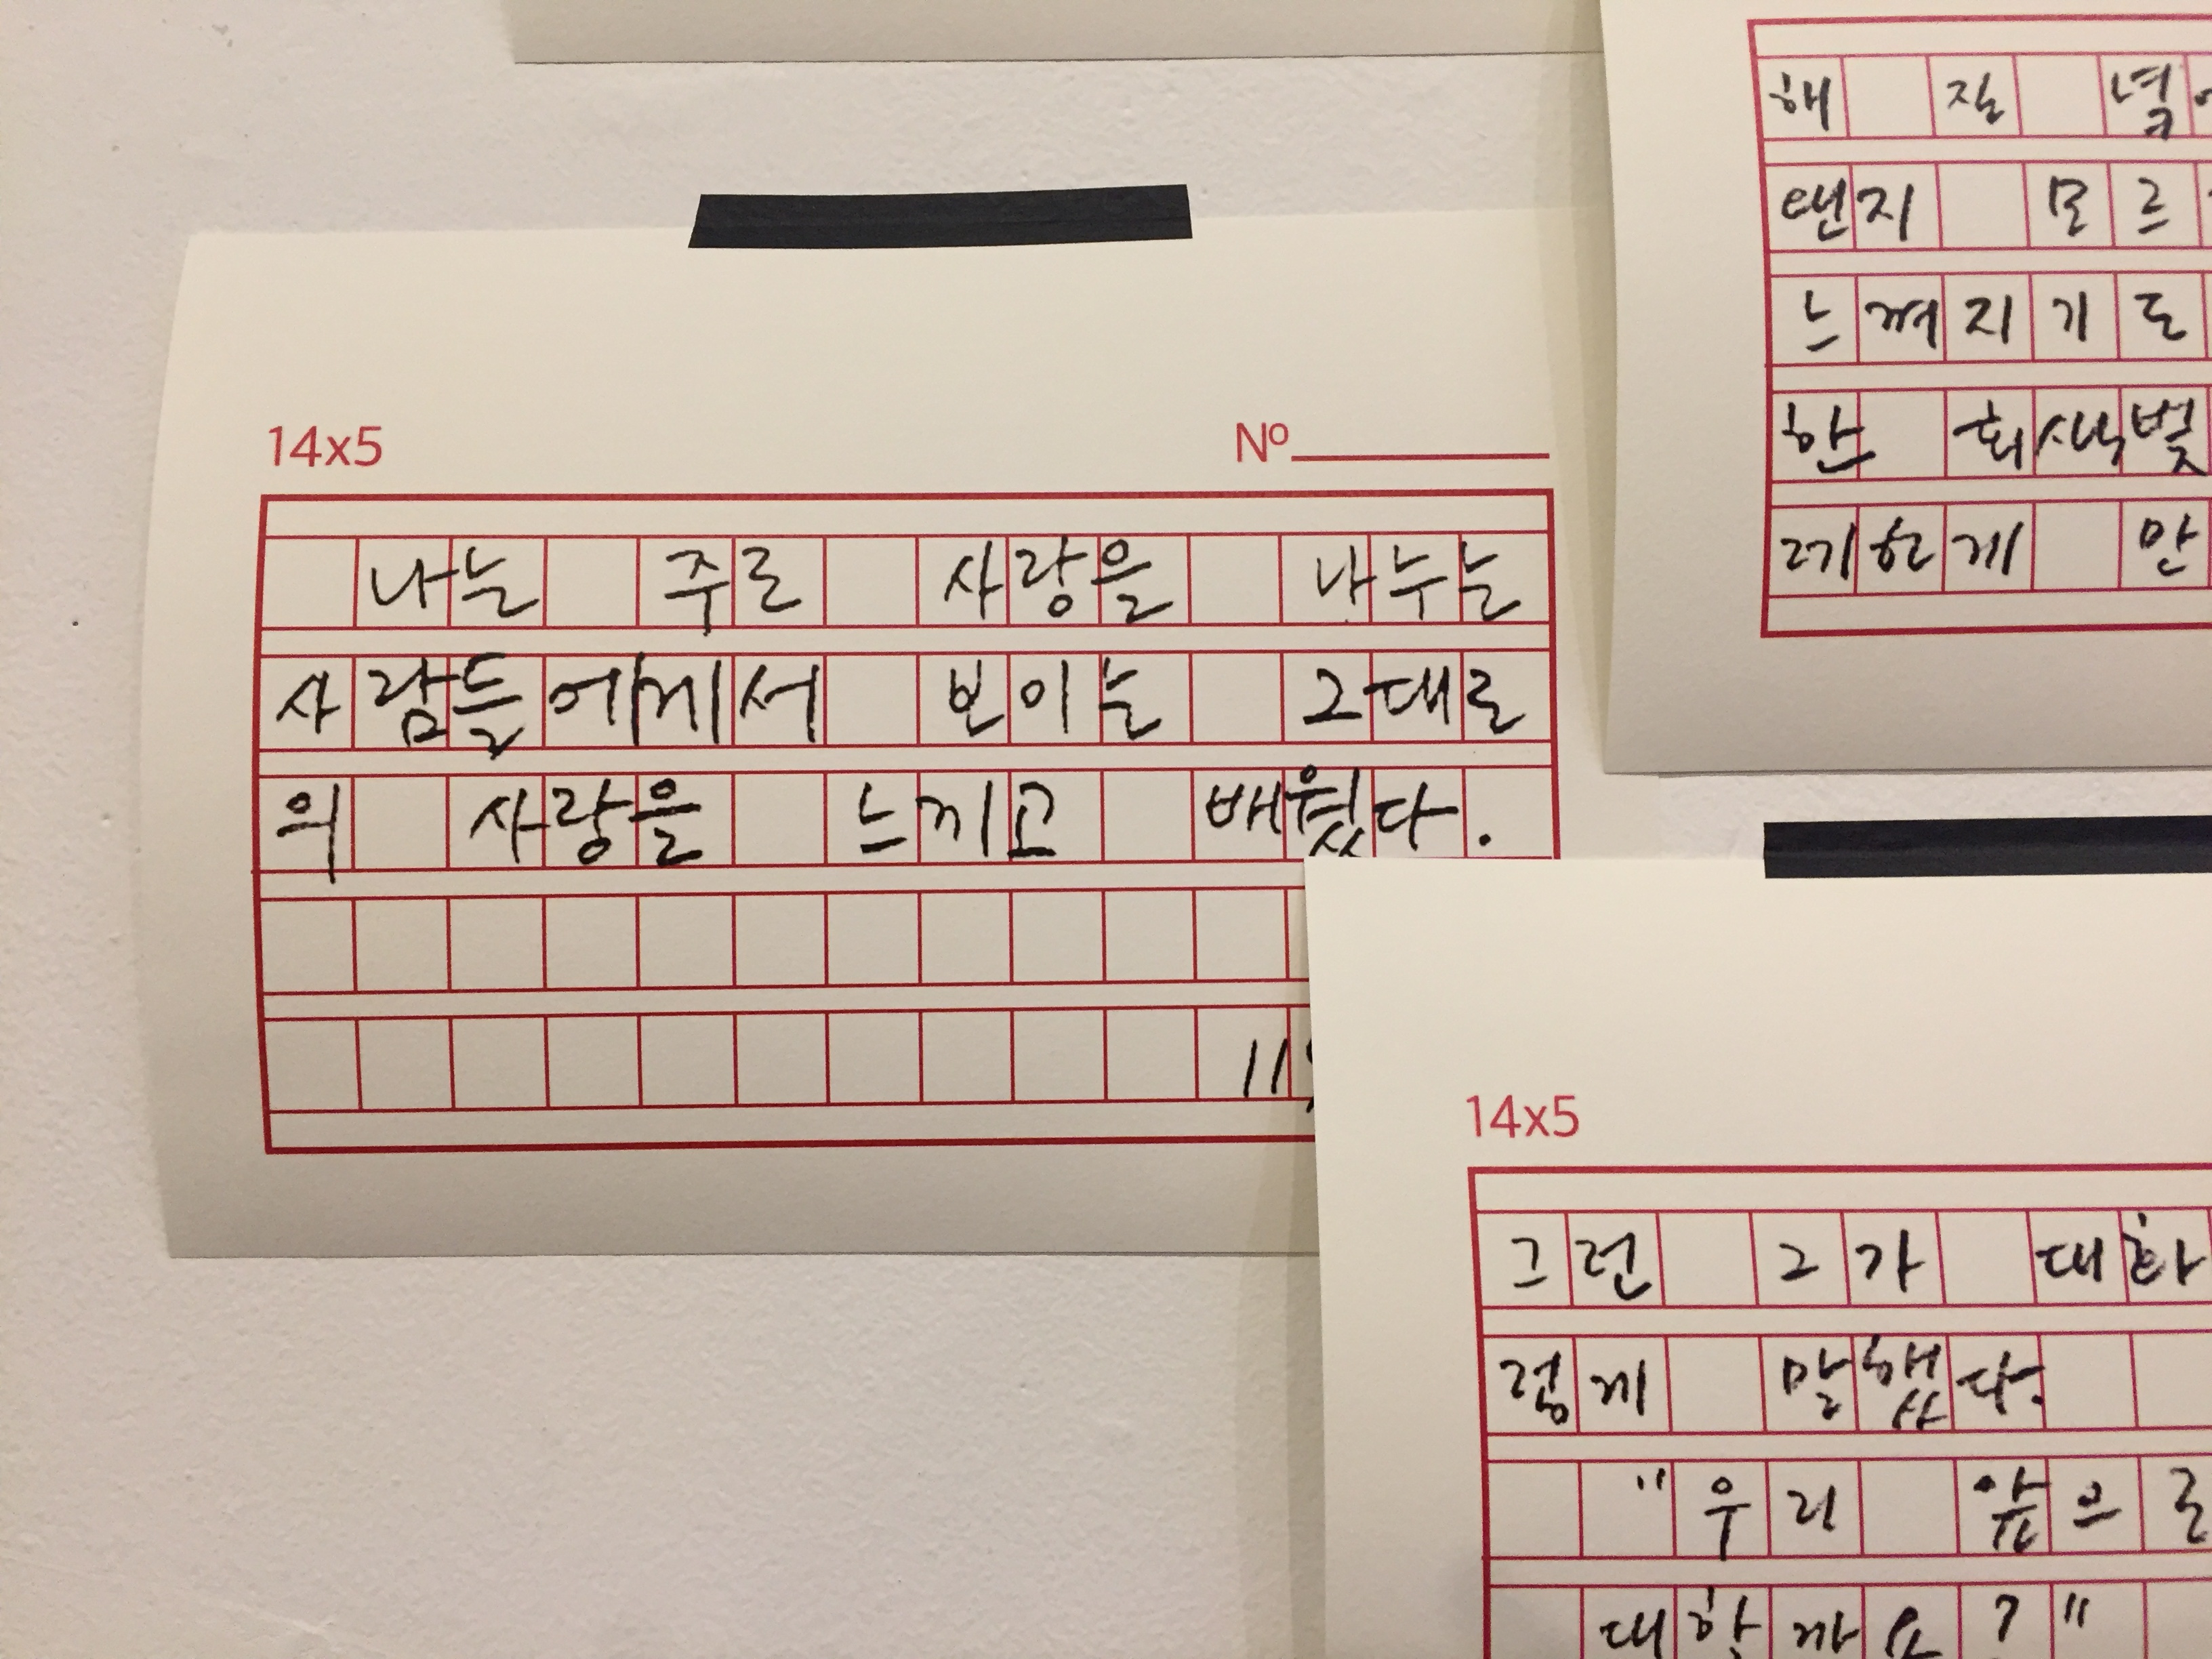 14x5 Nº
나는 주로 사랑을 나누는
사람들에게서 보이는 그대로
의 사랑을 느끼고 배웠다.
해 질 녘
지 모르
느껴지기도
한 회색빛
게 만
14x5
그런 그가 대화
렇게 말했다.
"우리 앞으로
대할까요?"